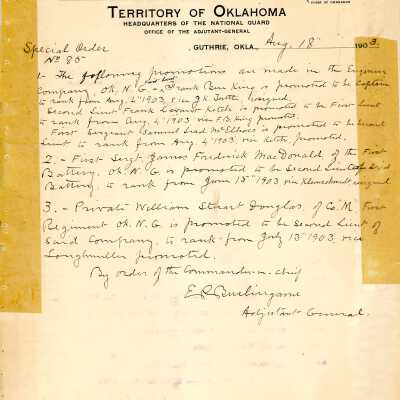 TERRITORY OF OKLAHOMA
HEADQUARTERS OF THE NATIONAL GUARD
OFFICE OF THE ADJUTANT-GENERAL
GUTHRIE, OKLA., Aug. 18" 1903.
Special Order
No 85
1- The following promotions are made in the Engineer
Company, Ok. N. G. - 1st Lieut Ben King is promoted to be Captain
to rank from Aug. 4" 1903, vice J.K. resigned.
Second Lieut Frank Ketch is promoted to be First Lieut
to rank from Aug 4" 1903 via F.B. King promoted.
First Sergeant Samuel is promoted to be Second
Lieut to rank from Aug 4" 1903 via Ketch, promoted.
2.- First Sergt James Fredrick MacDonald of the First
Battery, Ok. N. G. is promoted to be Second Lieut of said
Battery, to rank from June 15" 1903 via resigned.
3.- Private William Stuart Douglas, of Co "M" First
Regiment Ok. N. G. is promoted to be Second Lieut of
Said Company, to rank from July 13" 1903, vice
Longmiller promoted.
By order of the Commander-in-chief
E.P. Burlingame
Adjutant General.